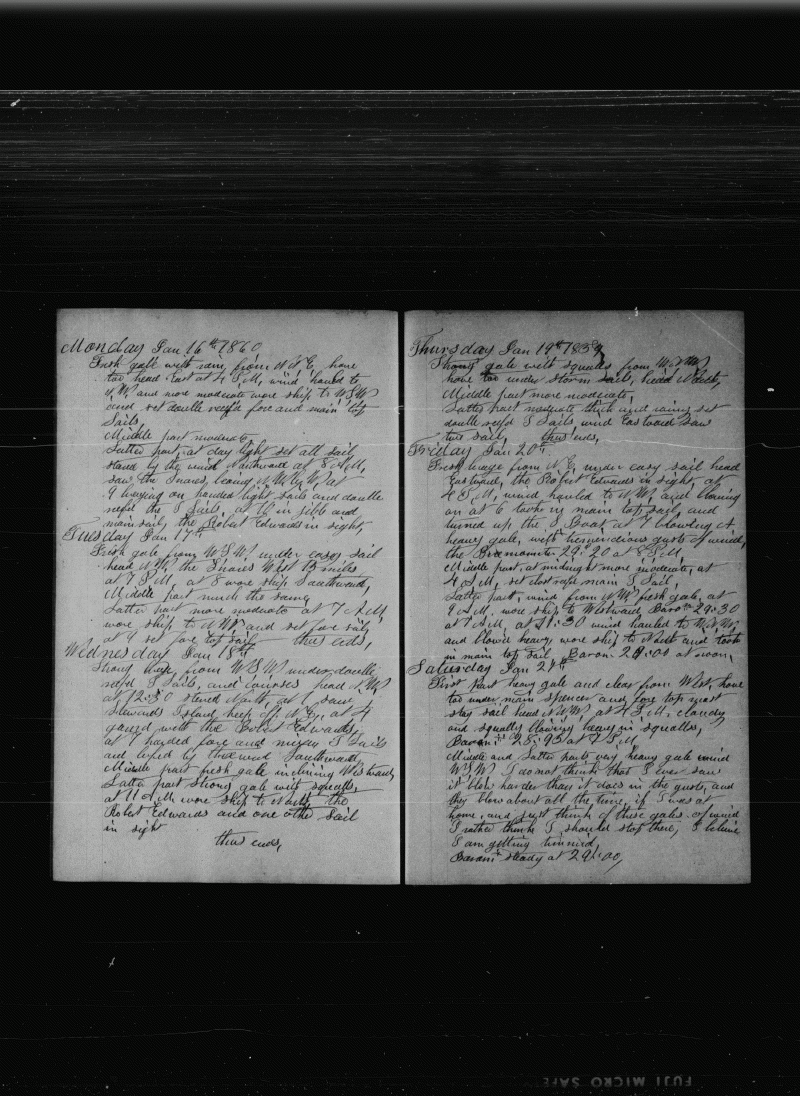 Monday Jan 16th 1860
Fresh gale with rain, from N.E, hove
too head East at 4 P.M, wind hauled to
N.W and more moderate wore ship to WSW
and set double reef'd fore and main top
Sails
Middle part moderate,
Latter part, at day light set all sail
stand by the wind Northward at 8 A.M,
saw the Snares, bearing at
9 luffing on handed light sails and double
reef'd the T Sails, at 10 in jibb and
mainsail, the Robert Edwards in sight,
Tuesday Jan 17th
Fresh gale from W.S.W, under easy sail
head N.W, the Snares West 15 miles
at 7 P.M, at 8 wore ship Southward,
Middle part much the same
Latter part more moderate at 7 A.M
wore ship to NW and set fore sail,
at 9 set fore top sail thus ends,
Wednesday Jan 18th
Strong breeze from W.S.W under double
reef'd T Sails, and courses head N.W
at 12:30 stered North, at 1 saw
Stewards Island keep off N.E, at 4
gamed with the Robert Edwards,
at 7 handed fore and mizen T Sails
and luf'd by the wind Southward,
Middle part fresh gale inclining Westward,
Latter part strong gale with squalls
at 11 A.M. wore ship to North, the
Robert Edwards and one other Sail
in sight
thus ends,
Thursday Jan 19th 1859
Strong gale with squalls from W.N.W
hove too under storm sails, head North,
Middle part more moderate,
Latter part moderate thick and rainy set
double reef'd T Sails, wind Eastward saw
two sail, thus ends,
Friday Jan 20th
Fresh breeze from N.E, under easy sail head
Eastward, the Robert Edwards in sight, at
4 P.M, wind hauled to N.W, and blowing
on at 6 took in main top sail, and
turned up the S Boat, at 7 blowing A
heavy gale, with tremendous gusts of wind,
the Baromiter 29:20 at 8 P.M,
Middle part, at midnight more moderate, at
4 A.M, set close reef'd main T Sail,
Latter part, wind from N.W, fresh gale, at
9 A.M. wore ship to Westward, Barom 29:30
at 7 A.M, at 11:30 wind hauled to W.N.W,
and blowd heavy, wore ship to North and took
in main top sail Barom 29:00 at noon,
Saturday Jan 21st
First part heavy gale and clear from West, hove
too under main spencer and fore top most
stay sail head N.N.W, at 4 P.M. cloudy
and squally blowing heavy in squalls,
Barom 28:95 at 7 P.M,
Middle and Latter parts very heavy gale wind
W.S.W I do not think that I ever saw
it blow harder than it does in the gusts, and
they blow about all the time, if I was at
home, and just think of these gales of wind
I rather think I should stop there, I believe
I am getting timmid,
Barom steady at 29:00,
FUJI MICRO SAFE